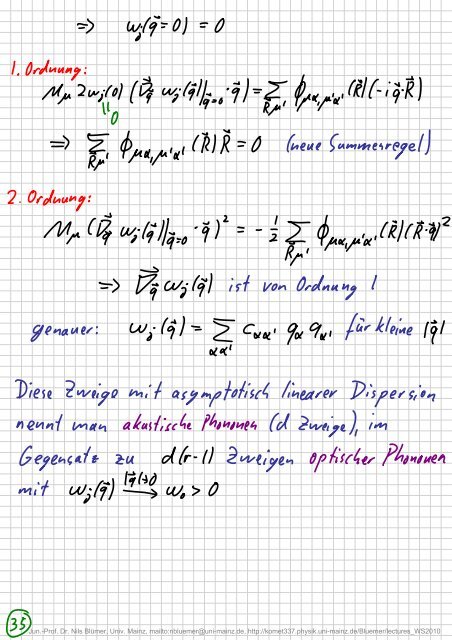 ⇒ ω_j(q⃗=0) = 0
1. Ordnung:
M_μ 2ω_j(0) (∇⃗_q ω_j(q⃗)|_{q⃗=0} · q⃗) = Σ_{R⃗μ'} ϕ_{μα,μ'α'}(R⃗)(-i q⃗·R⃗)
0
⇒ Σ_{R⃗μ'} ϕ_{μα,μ'α'}(R⃗) R⃗ = 0 (neue Summenregel)
2. Ordnung:
M_μ (∇⃗_q ω_j(q⃗)|_{q⃗=0} · q⃗)² = -1/2 Σ_{R⃗μ'} ϕ_{μα,μ'α'}(R⃗)(R⃗·q⃗)²
⇒ ∇⃗_q⃗ ω_j(q⃗) ist von Ordnung 1
genauer: ω_j(q⃗) = Σ_{αα'} c_{αα'} q_α q_{α'} für kleine |q⃗|
Diese Zweige mit asymptotisch linearer Dispersion
nennt man akustische Phononen (d Zweige), im
Gegensatz zu d(r-1) Zweigen optischer Phononen
mit ω_j(q⃗) →^{|q⃗|→0} ω₀ > 0
35
Jun.-Prof. Dr. Nils Blümer, Univ. Mainz, mailto:nbluemer@uni-mainz.de, http://komet337.physik.uni-mainz.de/Bluemer/lectures_WS2010